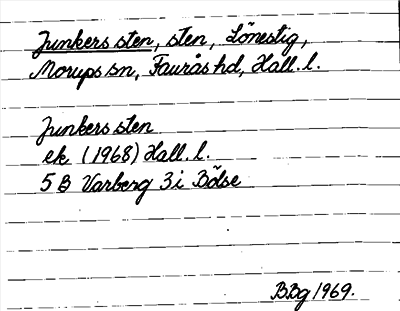 Junkers sten, sten, Lönestig,
Morups sn, Faurås hd, Hall. l.
Junkers sten
ek (1968) Hall. l.
5 B Varberg 3 i Bölse
BBg 1969.